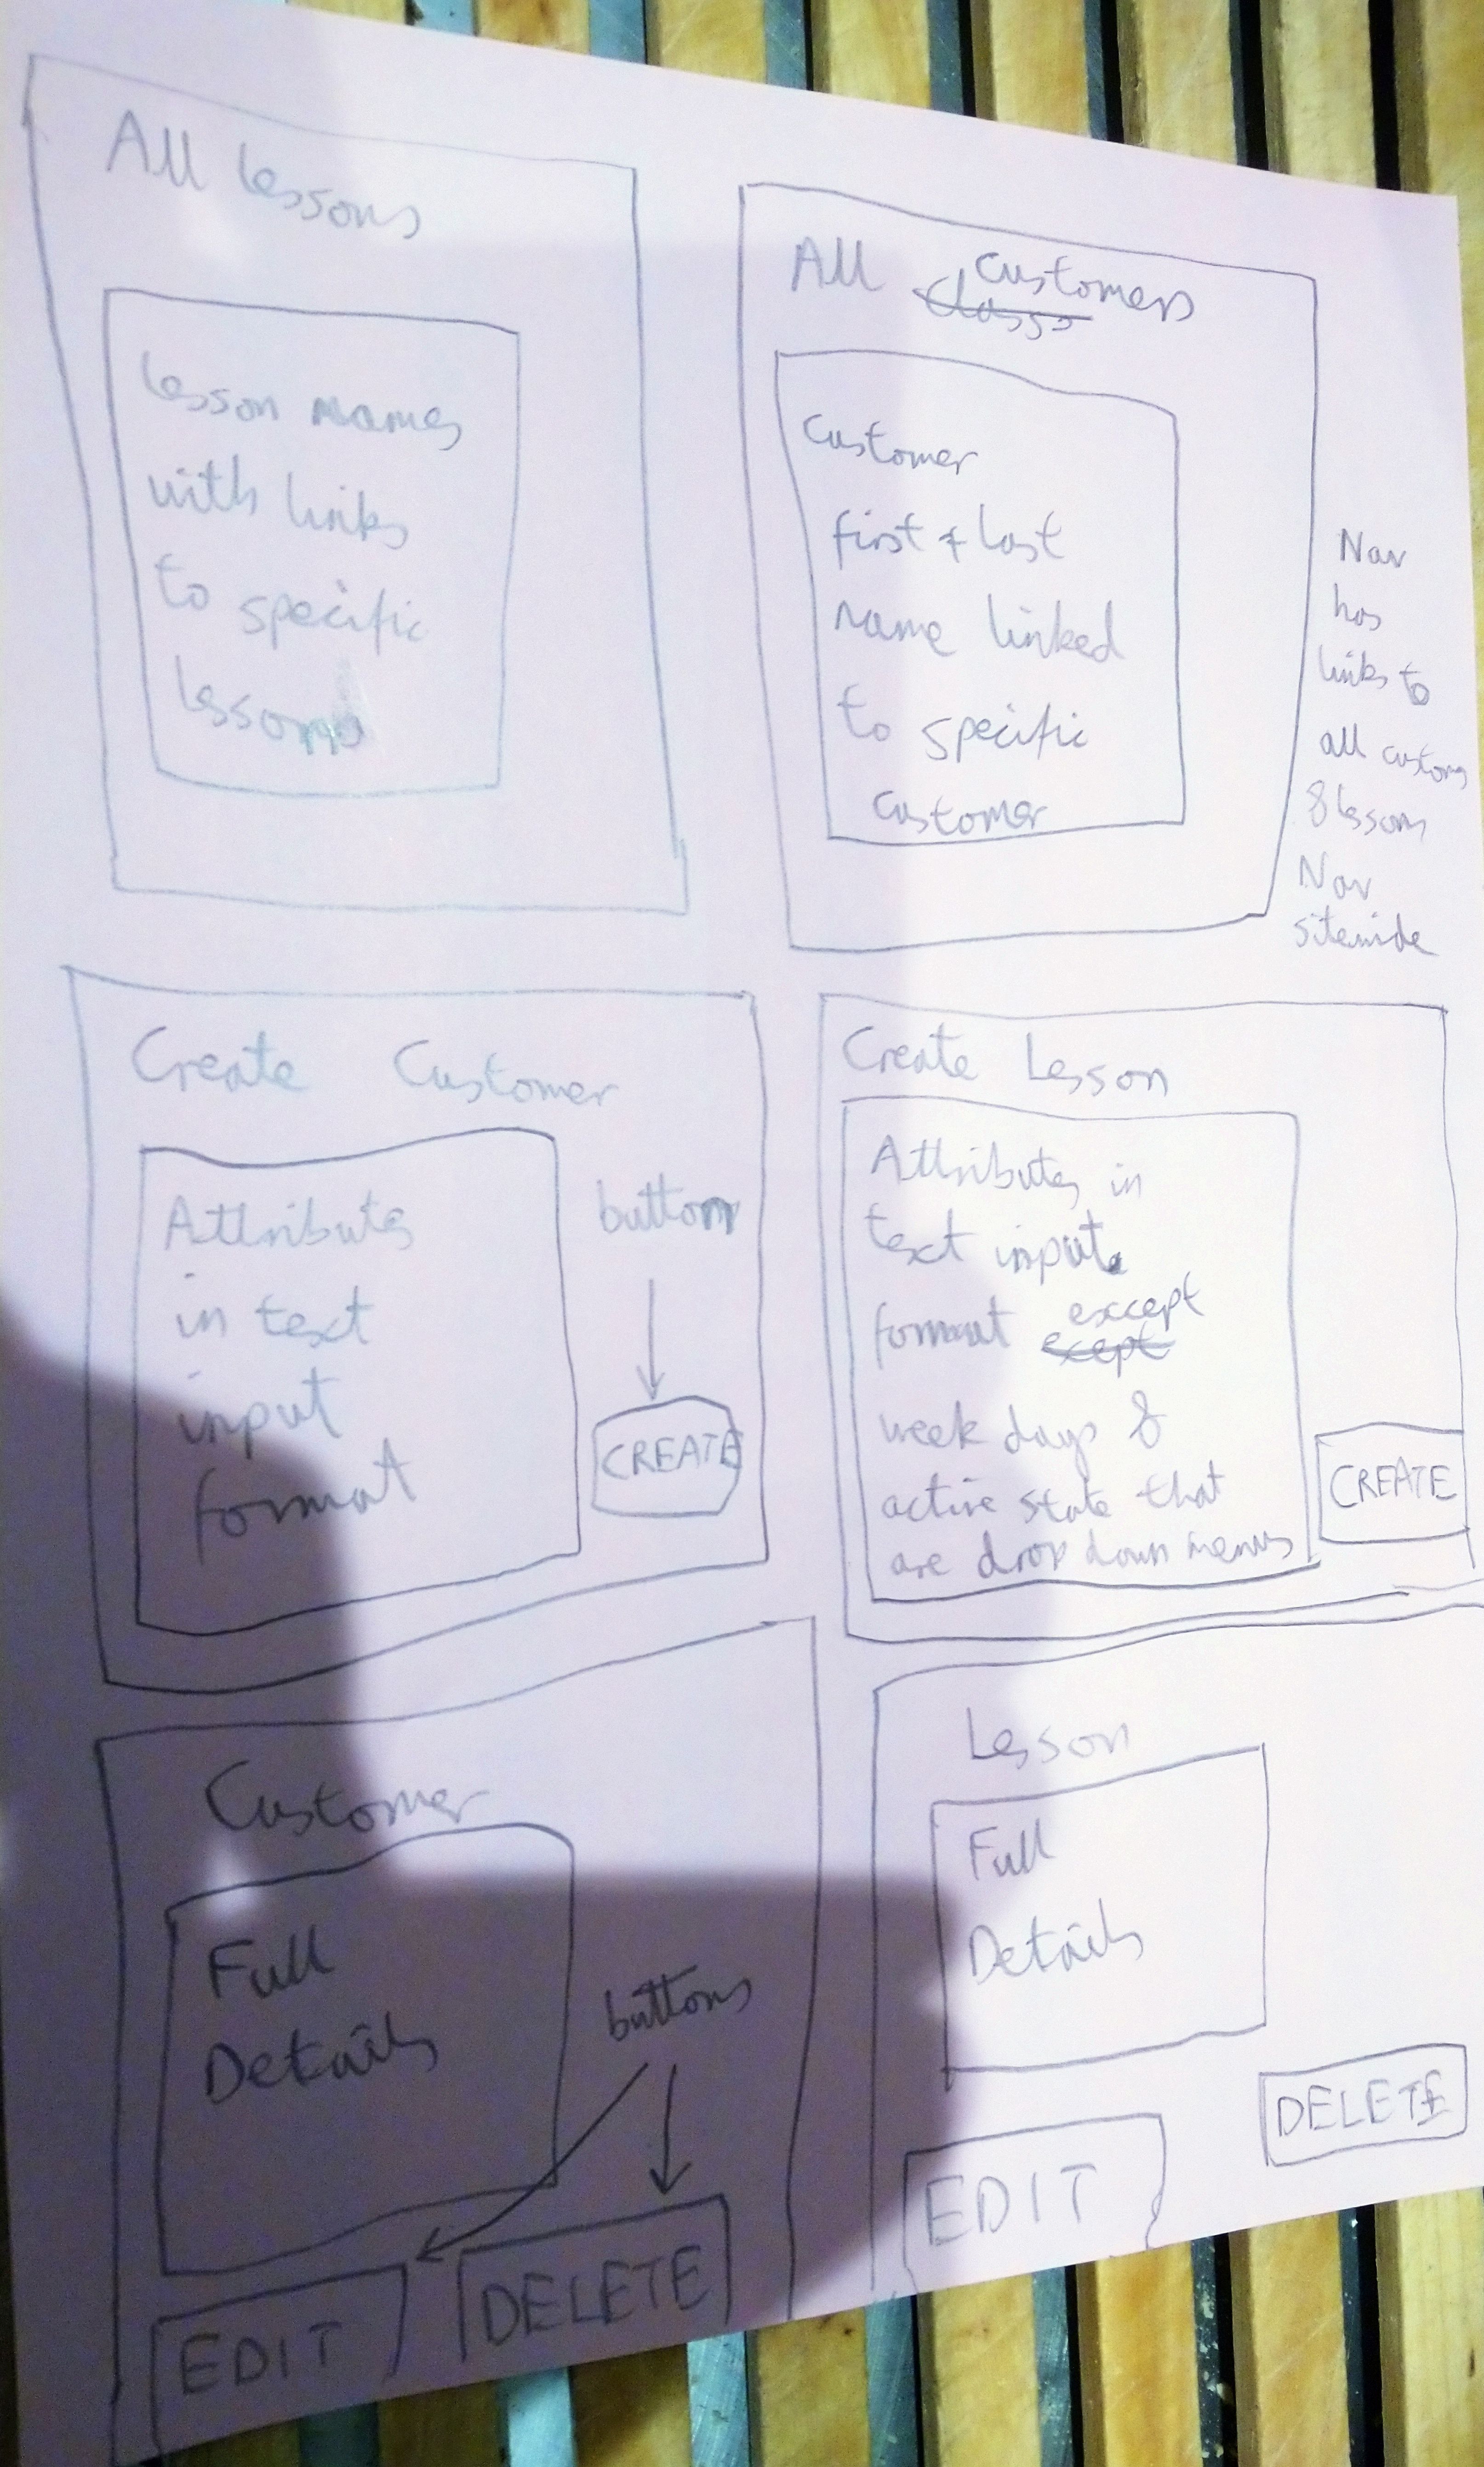 All lessons
lesson names
with links
to specific
lessons
All customers
classs
customer
first & last
name linked
to specific
customer
Nav
has
links to
all customs
& lessons
Nav
sitewide
Create Customer
Attributes
in text
input
format
button
CREATE
Create Lesson
Attributes in
text input
format except
except
week days &
active state that
are drop down menus
CREATE
Customer
Full
Details
buttons
EDIT
DELETE
Lesson
Full
Details
EDIT
DELETE